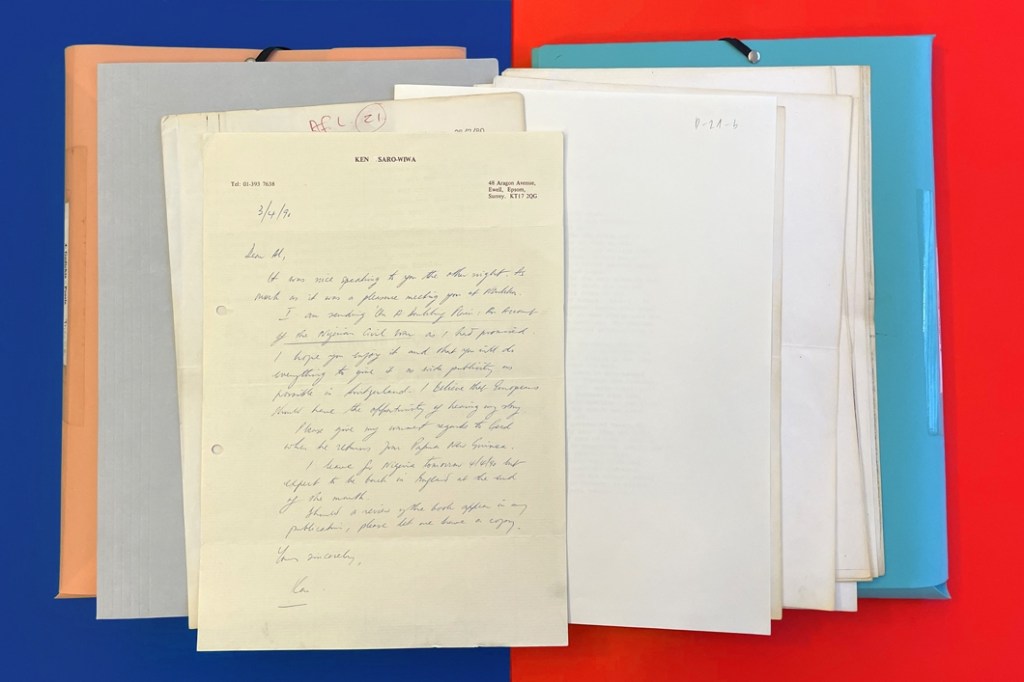 Af L 21
KEN SARO-WIWA
Tel: 01-393 7638
48 Aragon Avenue,
Ewell, Epsom,
Surrey. KT17 2QG
3/4/90
Dear Al,
It was nice speaking to you the other night. As
much as it was a pleasure meeting you at
I am sending 'On A Darkling Plain: An Account
of the Nigerian Civil War' as I had promised.
I hope you enjoy it and that you will do
everything to give it as wide publicity as
possible in Switzerland. I believe that Europeans
should have the opportunity of hearing my story
Please give my warmest regards to
when he returns from Papua New Guinea.
I leave for Nigeria tomorrow but
expect to be back in England at the end
of the month.
Should a review of the book appear in any
publication, please let me have a copy.
Yours sincerely,
Ken